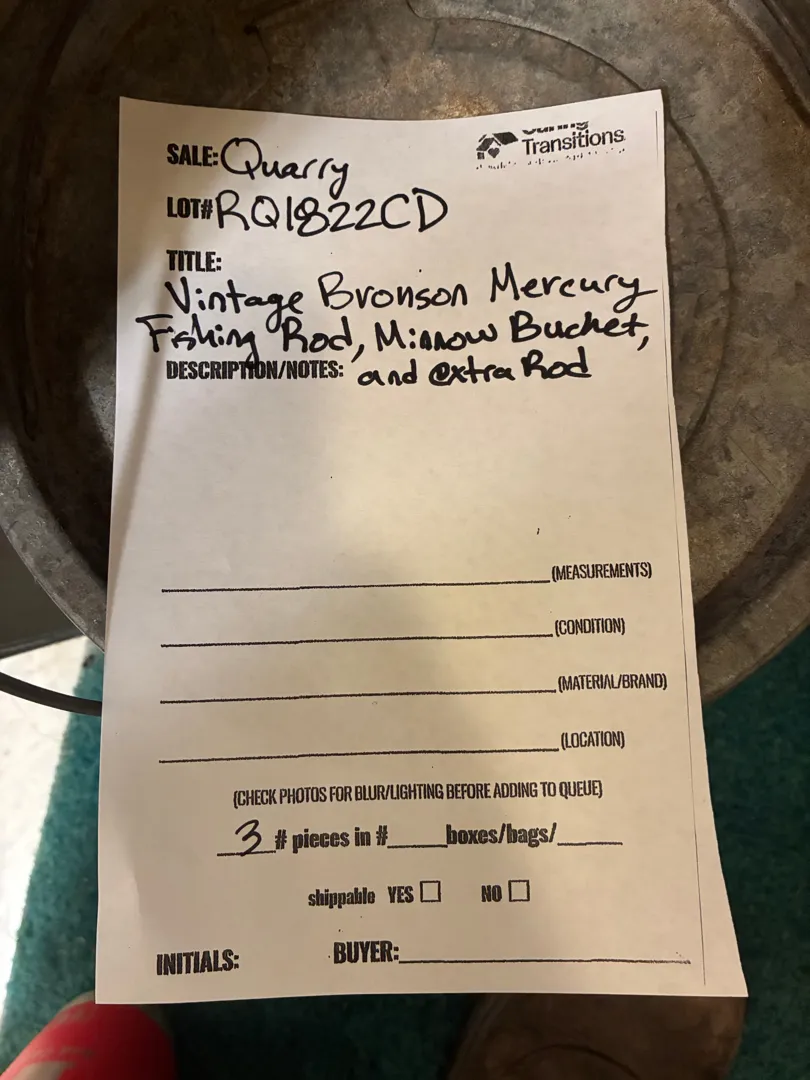 SALE: Quarry
Transitions
LOT# RQ1822CD
TITLE:
Vintage Bronson Mercury
Fishing Rod, Minnow Bucket,
DESCRIPTION/NOTES: and extra Rod
(MEASUREMENTS)
(CONDITION)
(MATERIAL/BRAND)
(LOCATION)
(CHECK PHOTOS FOR BLUR/LIGHTING BEFORE ADDING TO QUEUE)
3 # pieces in #____boxes/bags/____
shippable YES ☐ NO ☐
INITIALS: BUYER:____